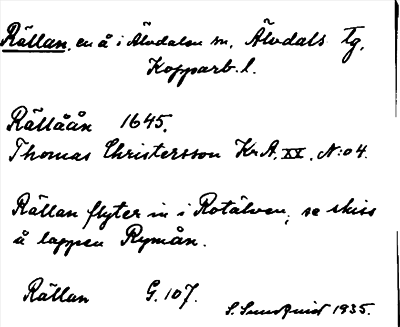 Rällan, en å i Älvdalen sn, Älvdals tg,
Kopparb. l.
Rällåån 1645.
Thomas Christersson Kr.A. XX, N:o 4.
Rällan flyter in i Rotälven, se skiss
å lappen Rymån.
Rällan G. 107.
S. Sundquist 1935.